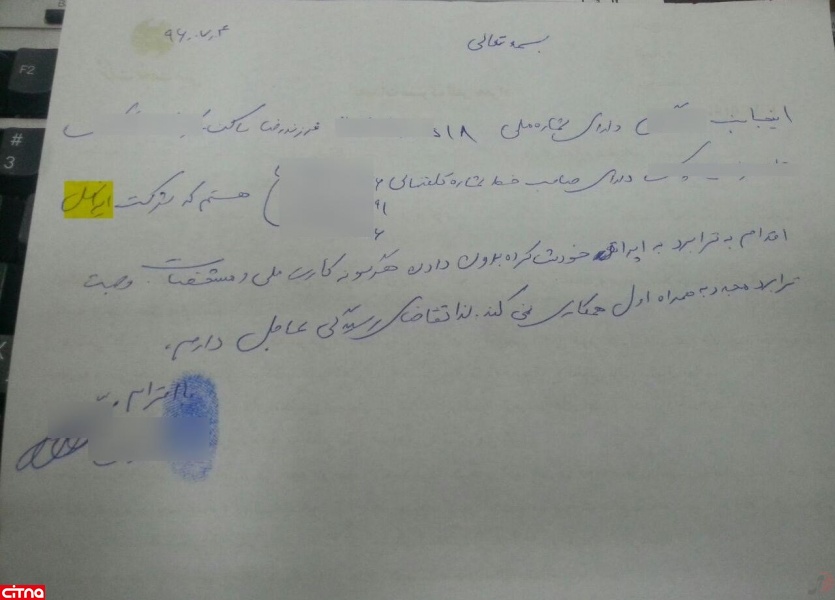 بسمه تعالی
۹۶.۷.۴
اینجانب دارای شماره ملی فرزند رضا ساکن
دارای صاحب خط شماره تلفنهای
هستم که شرکت ایرانسل
اقدام به ترابرد به اپراتور خودش کرده بدون دادن هرگونه کارت ملی و مشخصات. وجهت
ترابرد مجدد به همراه اول همکاری نمی کند. لذا تقاضای رسیدگی عاجل دارم.
با احترام
F2
#
3
CITNA